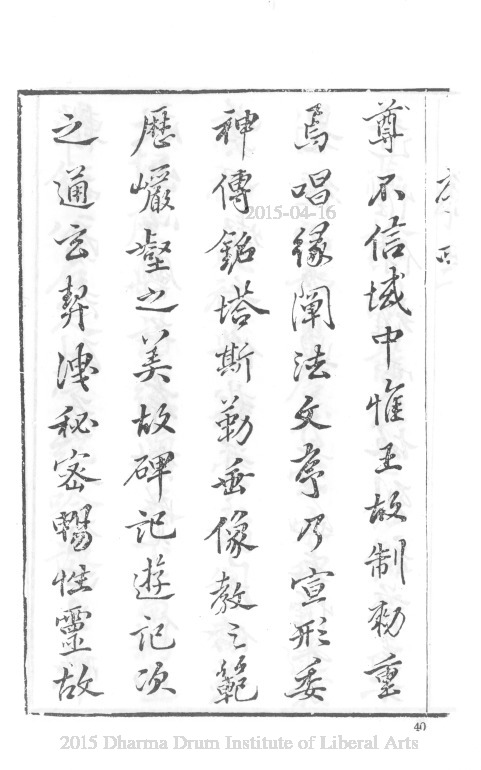 尊不信域中惟王故制勅重
焉唱緣闡法文序乃宣形委
神傳銘塔斯勒垂像教之範
歷巘壑之美故碑記遊記次
之通玄契洩秘密暢性靈故
40
2015-04-16
2015 Dharma Drum Institute of Liberal Arts